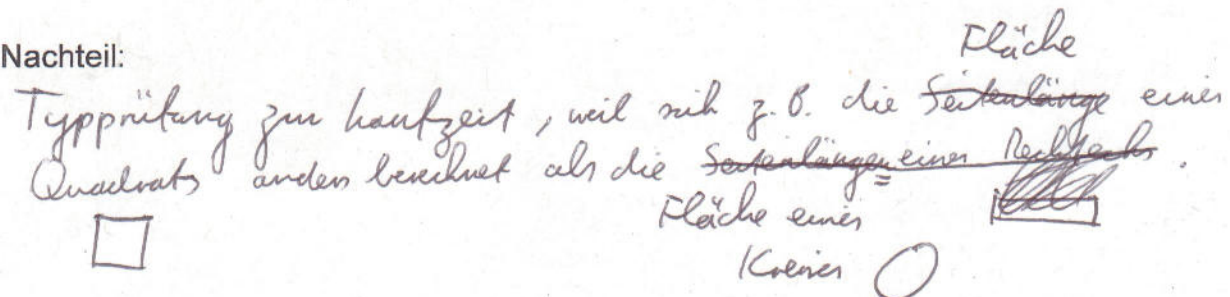 Fläche
Nachteil:
Typprüfung zur Laufzeit, weil sich z.B. die Seitenlänge eines
Quadrats anders berechnet als die Seitenlängen eines Rechtecks.
Fläche eines
Kreises